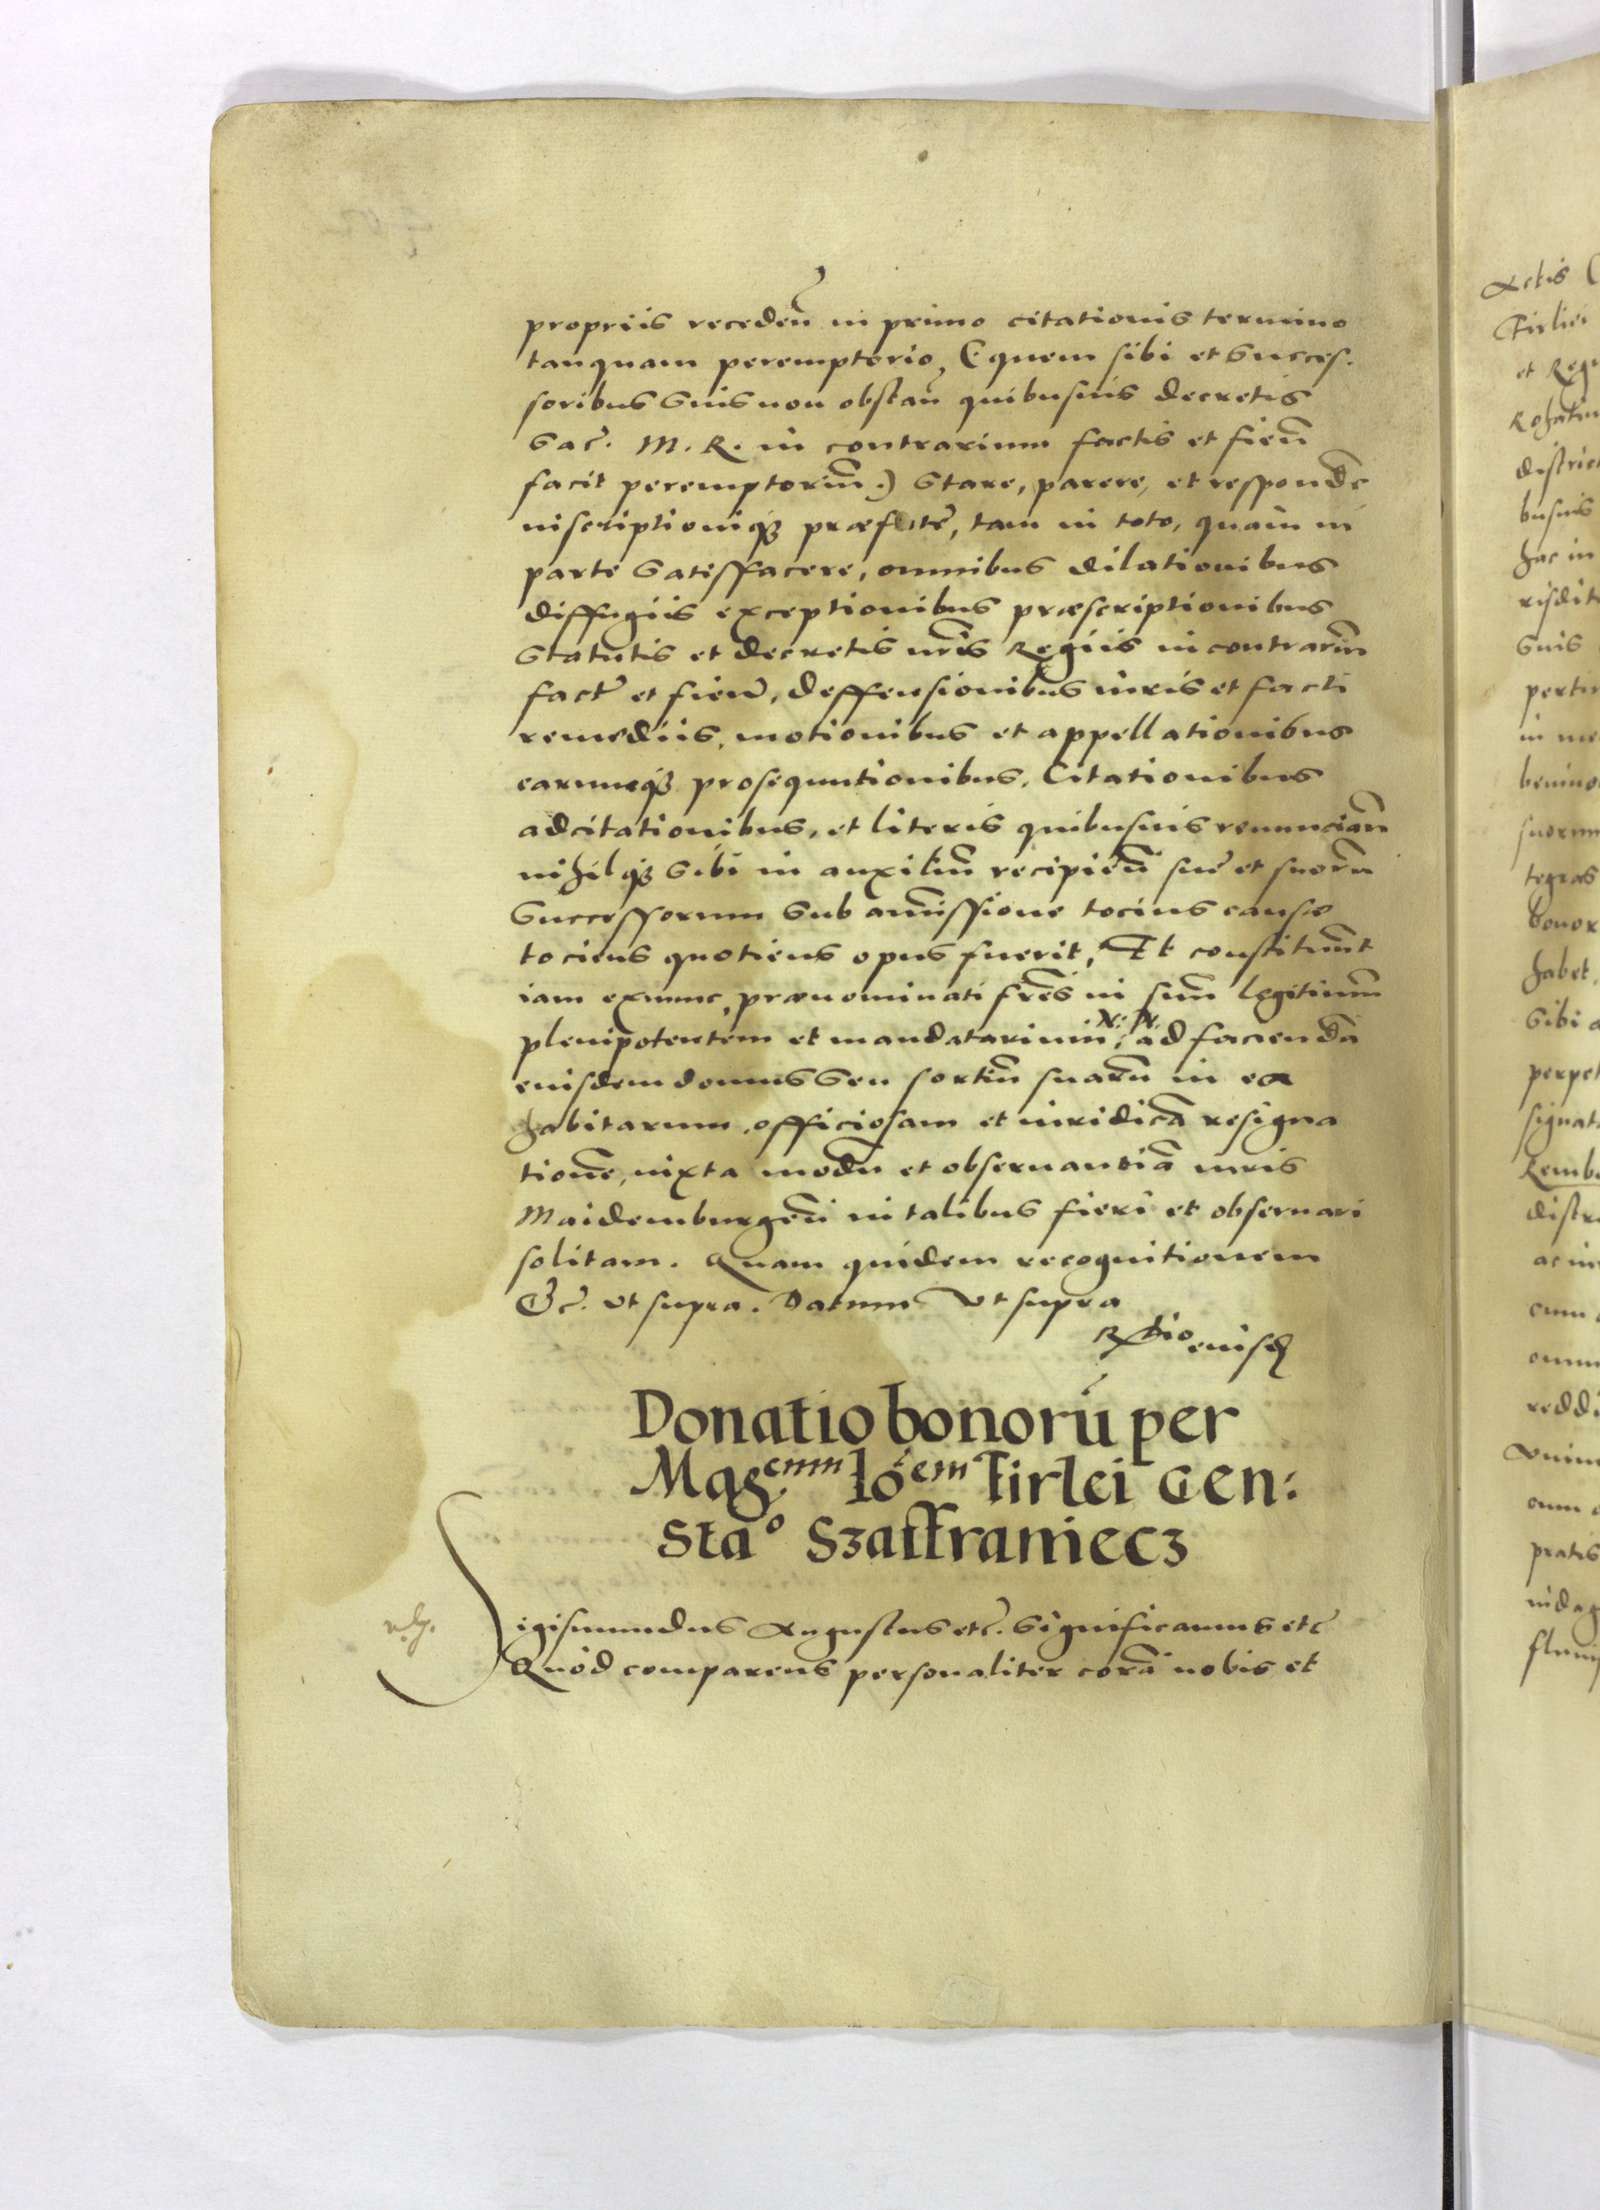 propriis receden̄ in primo citationis termino
tanquam peremptorio, (quem sibi et Succes.
soribus Suis non obstan̄ quibusuis decretis
Sac̄. M. R. in contrarium factis et fien̄
facit peremptoriū.) Stare, parere, et respondē
inscriptioniqȝ præfatæ, tam in toto, quam in
parte Satisffacere, omnibus dilationibus
diffugiis exceptionibus præscriptionibus
Statutis et decretis nr̄is Regiis in contrariū
fact̄ et fien̄, deffensionibus iuris et facti
remediis, motionibus et appellationibus
earumqȝ prosequutionibus. Citationibus
adcitationibus, et literis quibusuis renuncian̄
nihilqȝ Sibi in auxiliū recipien̄ suæ et suorū
Successorum Sub amissione tocius causæ
tociens quotiens opus fuerit, Et constituūt
iam exnunc, prænominati fr̄es in suū legitimū
plenipotentem et mandatarium, N: N. ad faciendā
eiusdem domus Seu sortiū suarū in ea
habitarum officiosam et iuridicā resigna
tionē, iuxta modū et obseruantiā iuris
Maidemburgen̄ in talibus fieri et obseruari
solitam. Quam quidem recognitionem
Etc̄. vt supra. Datum Vt supra
Rtio eiusd
Donatio bonorū per
Mag.cum Ioēm Firlei Gen:
Stao Szaffraniecz
Sigismundus Augustus etc̄. Significamus etc̄
Quod comparens personaliter corā nobis et
Actis
Firlei
et Reg
Rohatin
district
busuis
hac in
risdit
Suis
pertin
in me
benino
suorum
tegras
bonor
habet,
Sibi a
perpet
signat
Remb
distr
ac in
cum
omn
redd
cum
pratis
indag
fluui